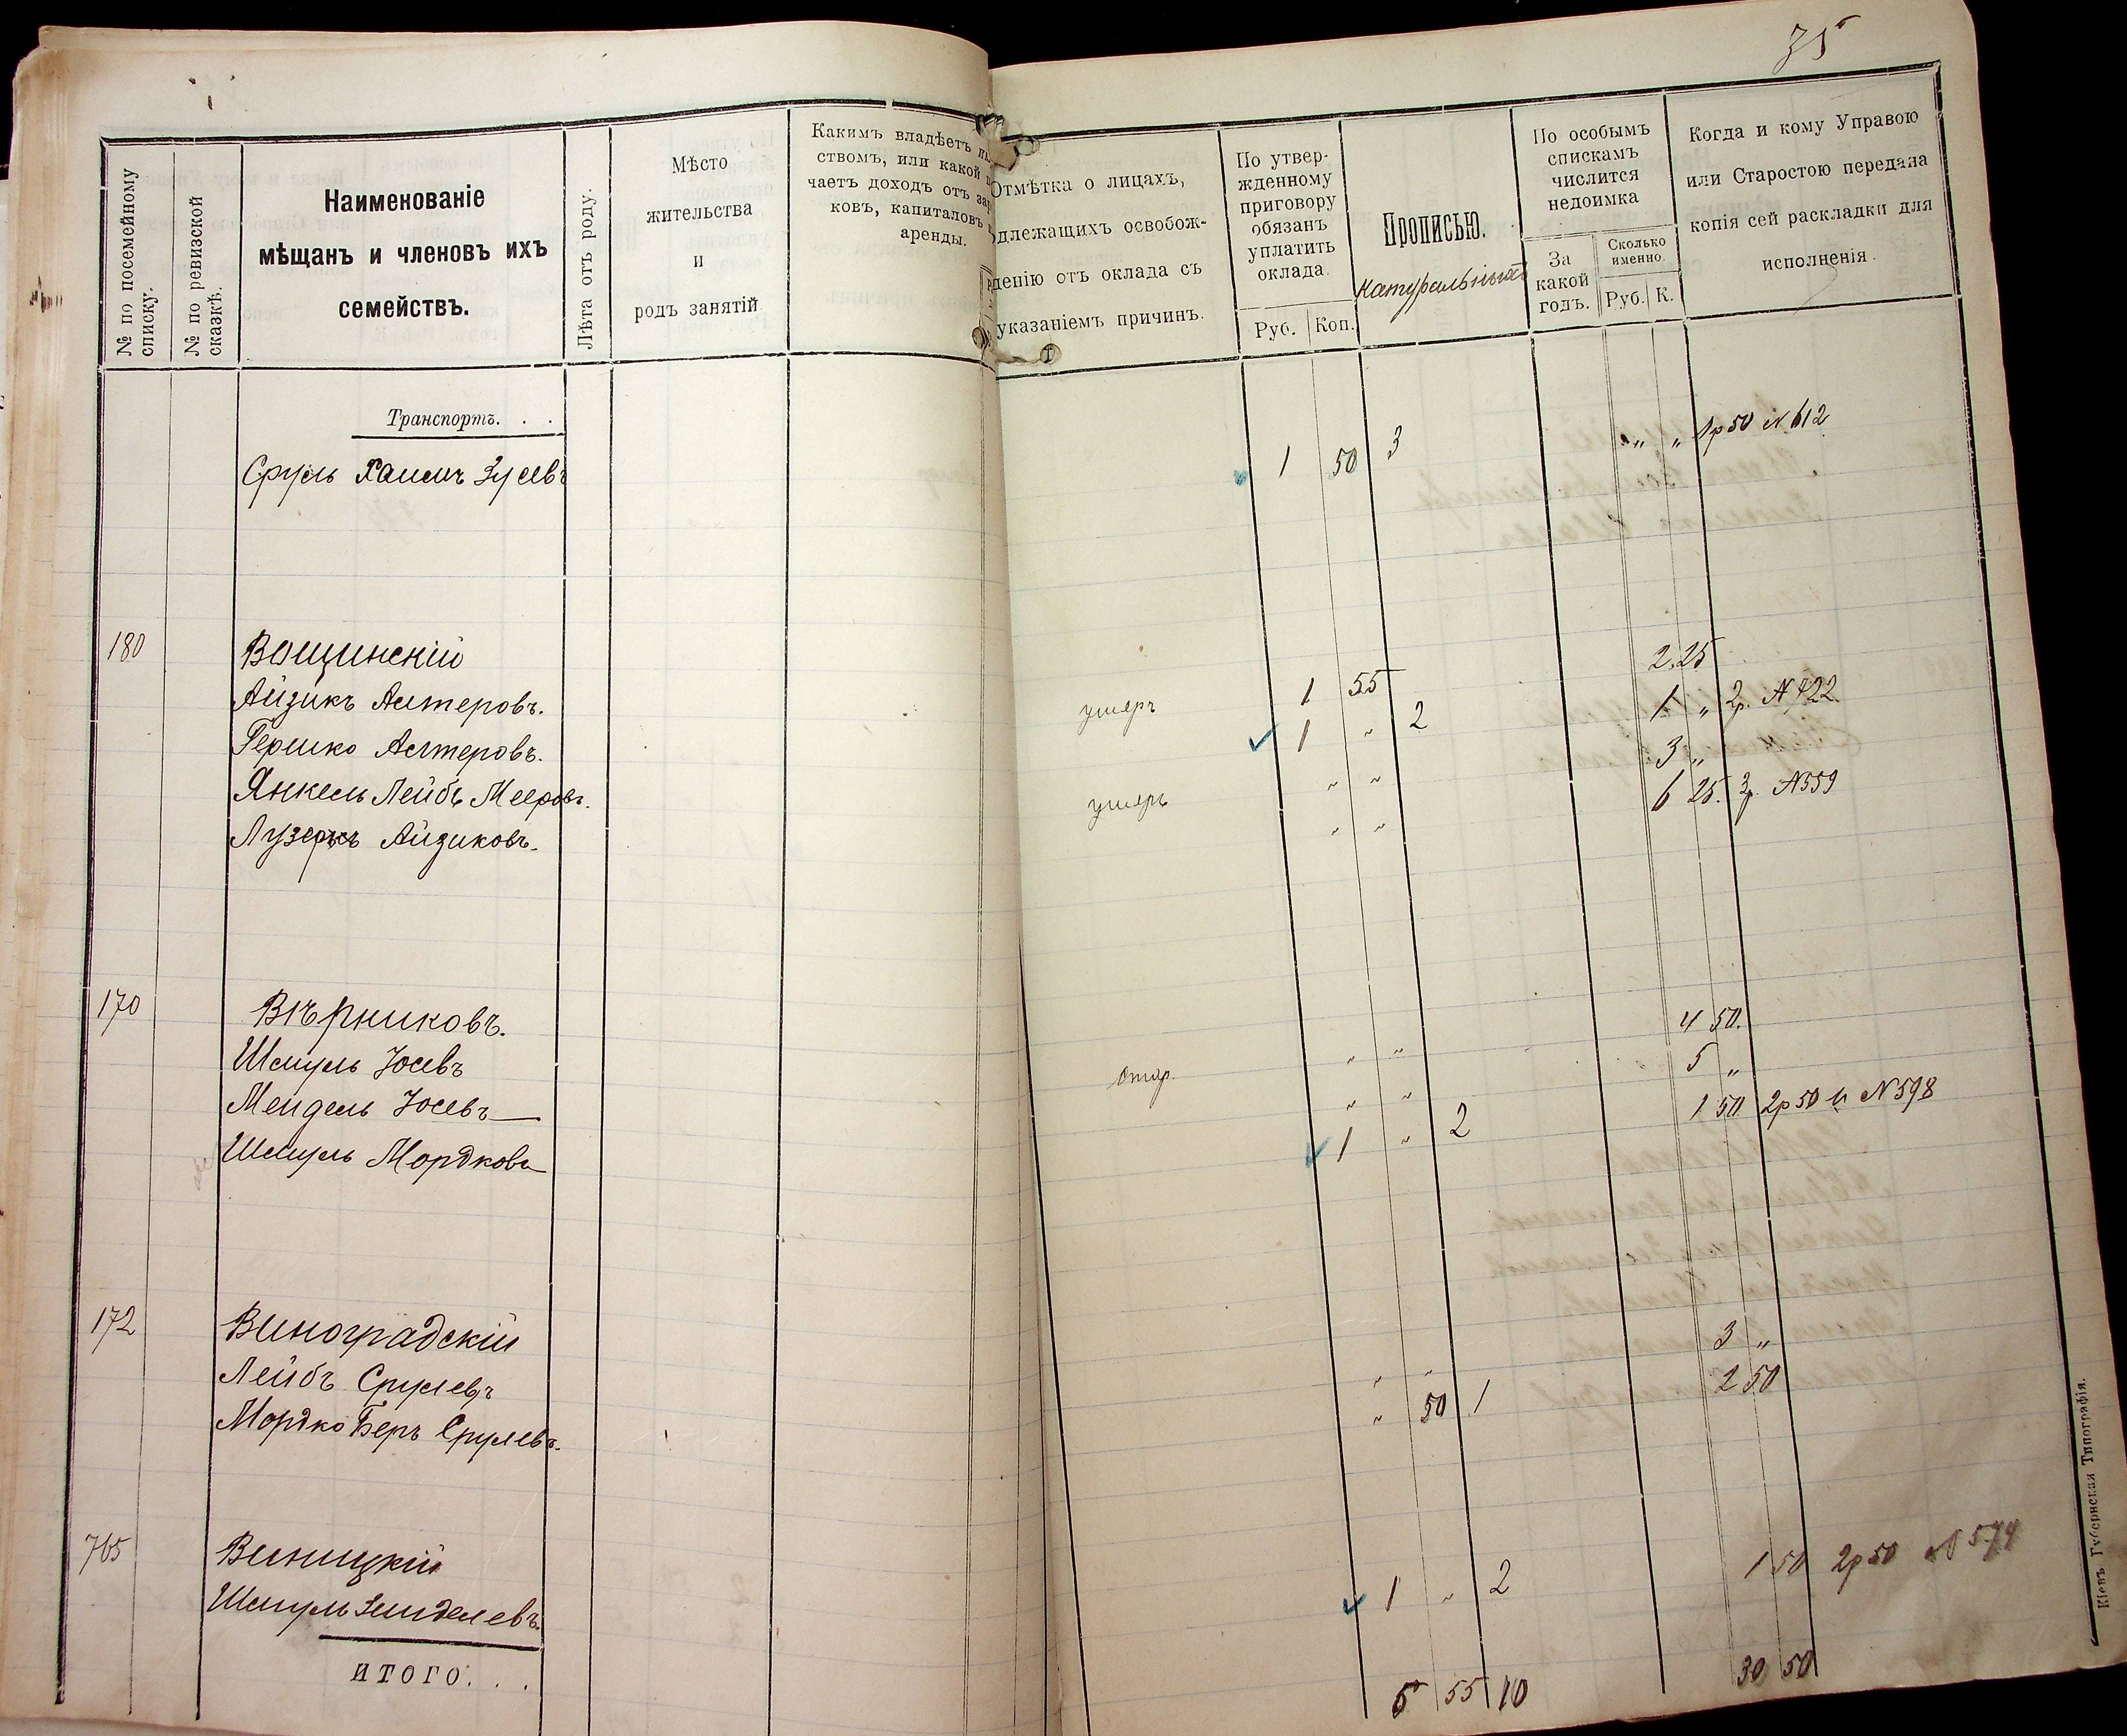 35
№ по посемейному
списку.
№ по ревизской
сказкѣ.
Наименованіе
мѣщанъ и членовъ ихъ
семействъ.
Лѣта отъ роду.
Мѣсто
жительства
и
родъ занятій
Какимъ владѣетъ
ствомъ, или какой
чаетъ доходъ отъ зар
ковъ, капиталовъ
аренды.
Отмѣтка о лицахъ,
длежащихъ освобож-
денію отъ оклада съ
указаніемъ причинъ.
По утвер-
жденному
приговору
обязанъ
уплатить
оклада.
Руб. Коп.
Прописью.
натуральныхъ
По особымъ
спискамъ
числится
недоимка
За
какой
годъ.
Сколько
именно.
Руб. К.
Когда и кому Управою
или Старостою передана
копія сей раскладки для
исполненія.
Транспортъ. . .
Сруль Хаимъ Зусевъ 1 50 3 „ „ 1р 50 N 612
180 Вощинскій 2.25
Айзикъ Алтеровъ. умеръ 1 55 1 „ 2р. N 722
Гершко Алтеровъ. 1 „ 2 3 „
Янкель Лейбъ Мееровъ. умеръ „ „ 6 25. 3р. N 559
Лузеръ Айзиковъ. „ „
170 Вѣрниковъ. 4 50.
Шмуль Іосевъ стар. „ „ 5 „
Мендель Іосевъ „ „ 1 50 2р 50 к N 598
Шмуль Мордковъ 1 „ 2
172 Виноградскій 3 „
Лейбъ Срулевъ „ „ 2 50
Мордко Беръ Срулевъ. „ 50 1
765 Виницкій 1 50 2р 50 N 574
Шмуль Зинделевъ. 1 „ 2
ИТОГО. . . 5 55 10 30 50
Кіевъ. Губернская Типографія.